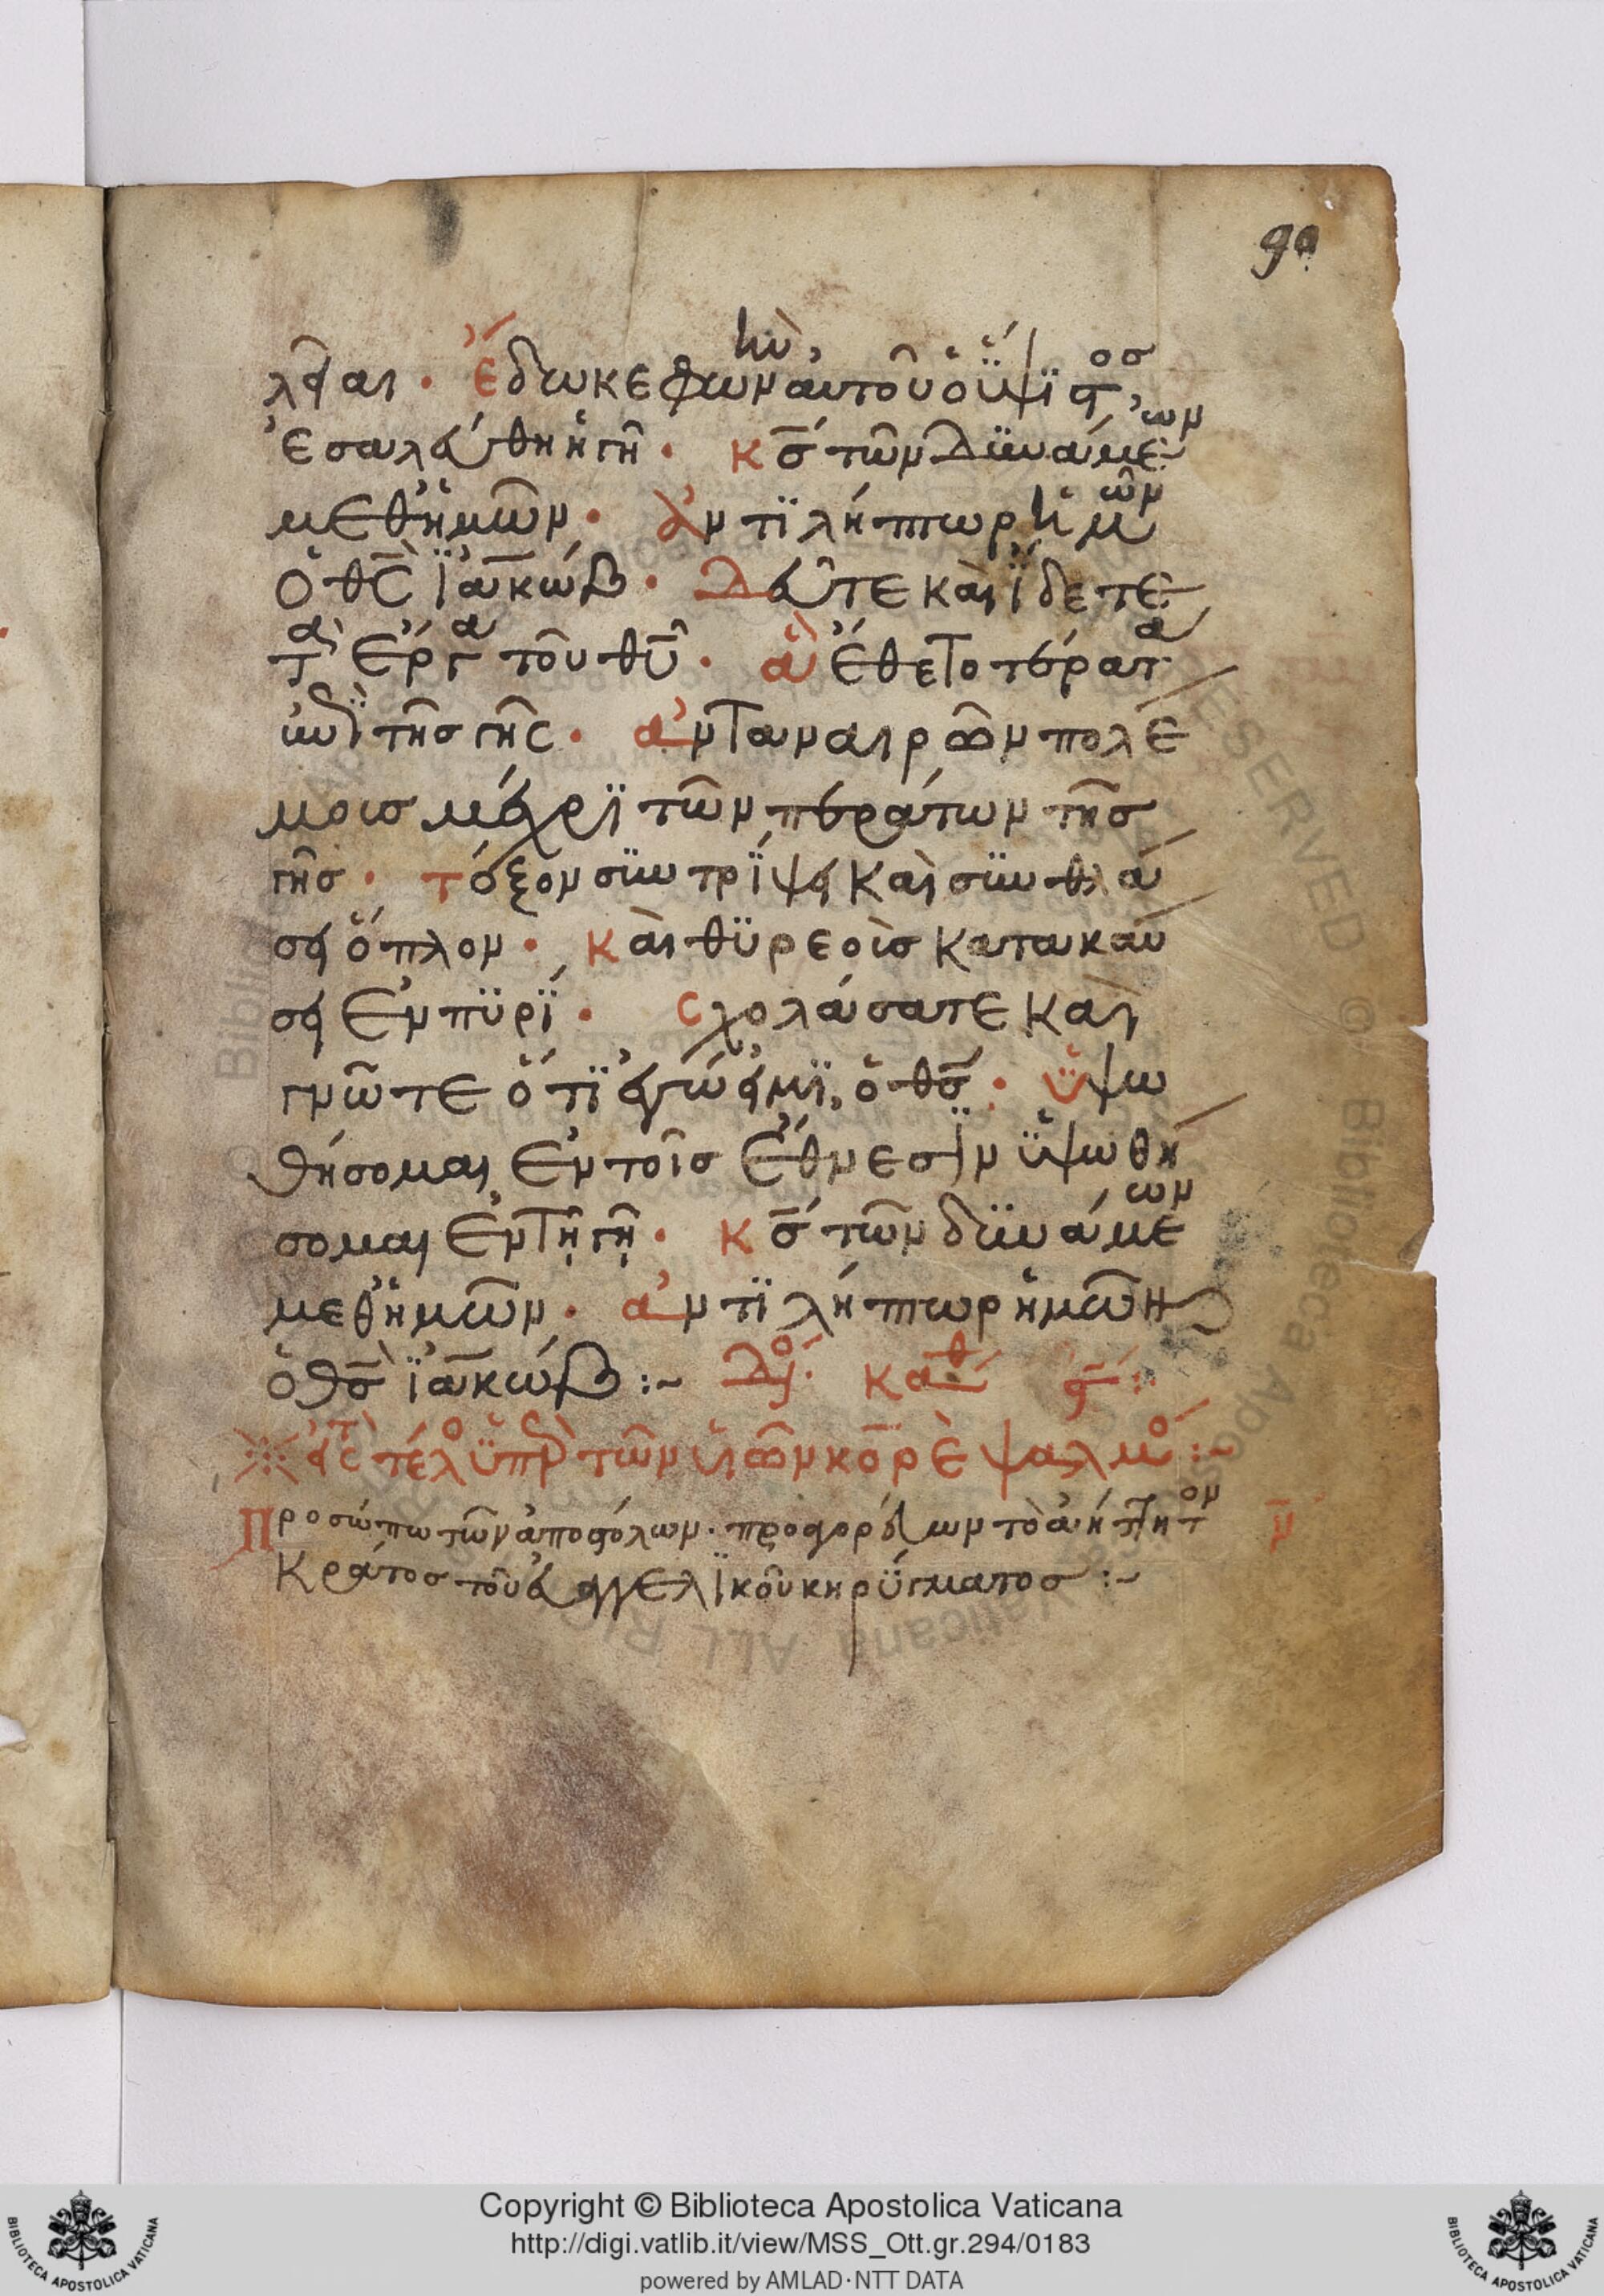 90
λεῖαι · ἔδωκε φωνὴν αὐτοῦ ὁ ὕψιστος,
ἐσαλεύθη ἡ γῆ · κς τῶν δυνάμεων
μεθ' ἡμῶν · ἀντιλήπτωρ ἡμῶν
ὁ θς ἰακώβ · δεῦτε καὶ ἴδετε
τὰ ἔργα τοῦ θυ · ἃ ἔθετο τέρατα
ἐπὶ τῆς γῆς · ἀνταναιρῶν πολέ
μοις μέχρι τῶν περάτων τῆς
γῆς · τόξον συντρίψει καὶ συνθλά
σει ὅπλον · καὶ θυρεοὶς κατακαύ
σει ἐν πυρί · σχολάσατε καὶ
γνῶτε ὅτι ἐγώ εἰμι, ὁ θς · ὑψω
θήσομαι ἐν τοῖς ἔθνεσιν ὑψωθή
σομαι ἐν τῇ γῇ · κς τῶν δυνάμεων
μεθ' ἡμῶν · ἀντιλήπτωρ ἡμῶν
ὁ θς ἰακώβ :~
εἰς τὸ τέλο ὑπὲρ τῶν υἱῶν κορὲ ψαλμο :~
Προσώπω τῶν ἀποστόλων · προσαγορεύων τὸ ἀήττητον
Κράτος τοῦ εὐαγγελικοῦ κηρύγματος :~
Copyright © Biblioteca Apostolica Vaticana
http://digi.vatlib.it/view/MSS_Ott.gr.294/0183
powered by AMLAD·NTT DATA
BIBLIOTECA APOSTOLICA VATICANA
BIBLIOTECA APOSTOLICA VATICANA